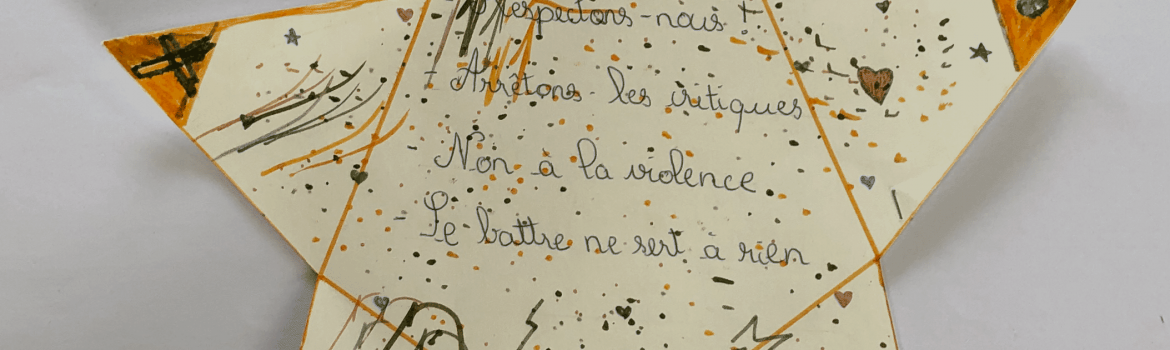 - Respectons-nous !
- Arrêtons les critiques
- Non à la violence
- Se battre ne sert à rien